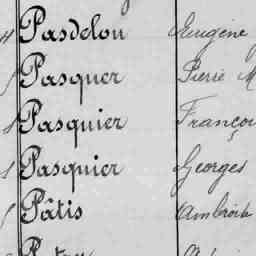 Pasdelou Eugène
Pasquer Pierre M
Pasquier Françoi
Pasquier Georges
Pâtis Ambrois